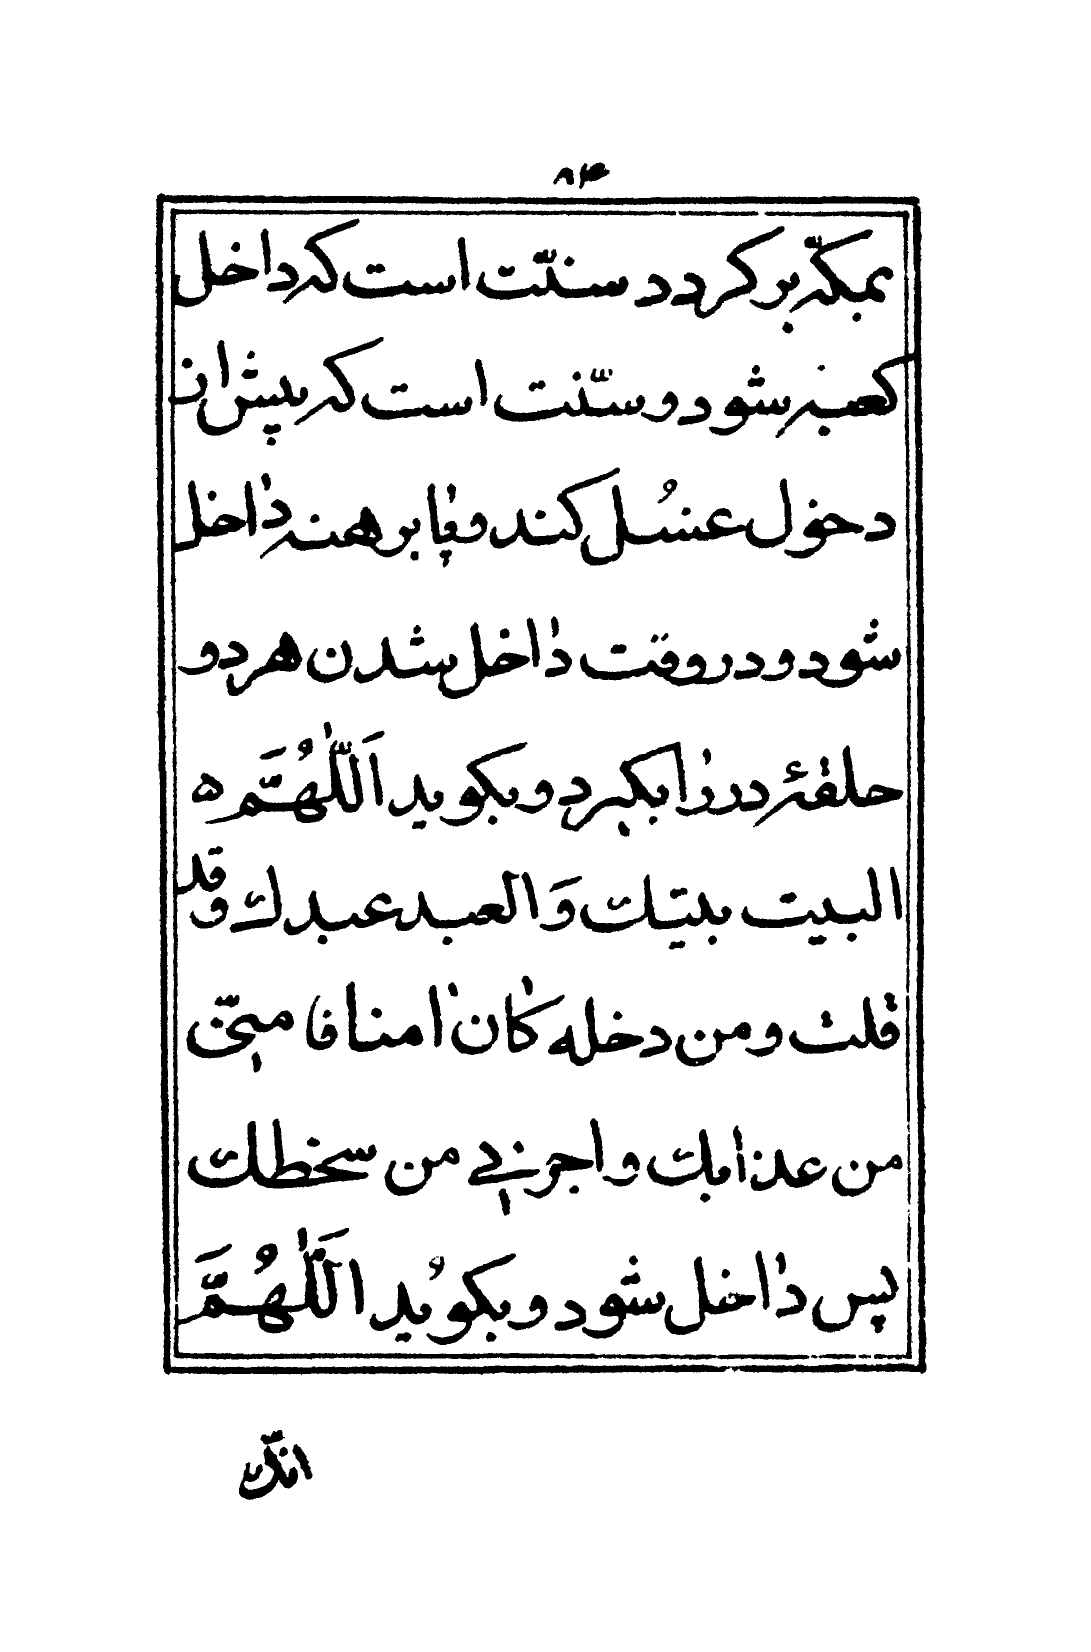 ۸۴
بمکّه برکردد سنّت است که داخل
کعبه شود و سنّت است که پیش ان
دخول غسُل کند و با پا برهنه داخل
شود و در وقت داخل شدن هر دو
حلقهٔ در را بکیرد و بکوید اَللّٰهُمَّ ه
البیت بیتك وَالعبد عبدك و قد
قلت و من دخله کان امنا فا منّی
من عذابك و اجرنی من سخطك
پس داخل شود و بکوُید اَللّٰهُمَّ
انّك